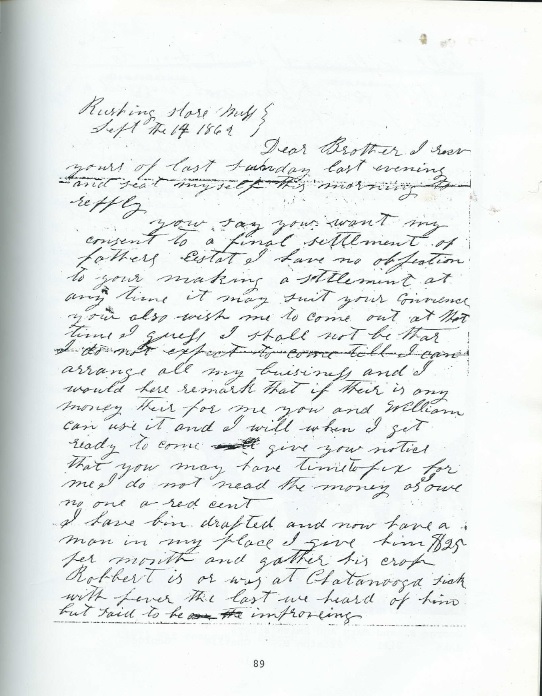 Rushing Store Miss }
Sept the 14 186
Dear Brother I recv
yours of last sunday last evening
and seat myself this morning to
repply
you say you want my
consent to a final settlement of
fathers Estat I have no objection
to your making a settlement at
any time it may suit your Convience
you also wish me to come out at that
time I guess I shall not be thar
I do not expect to come till I can
arrange all my buisiness and I
would here remark that if their is any
money their for me you and William
can use it and I will when I get
ready to come give you notice
that you may have time to fix for
me I do not nead the money as owe
no one a red cent
I have bin drafted and now have a
man in my place I give him $25
per month and gather his crop
Robbert is or was at Chatanooga sick
with fever the last we heard of him
but said to be improveing
89